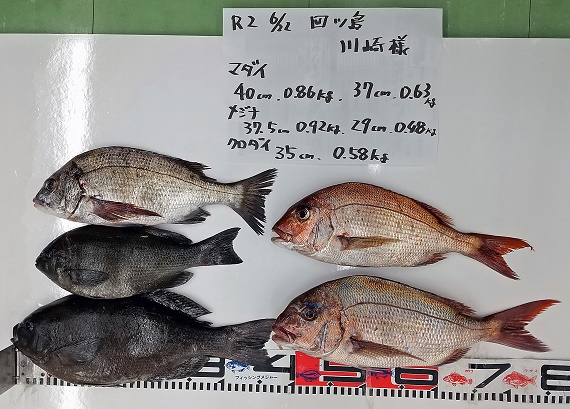 R2 6/22 四ツ島
川崎様
マダイ
40cm.0.86kg. 37cm.0.63kg
メジナ
37.5cm 0.92kg. 29cm.0.48kg
クロダイ
35cm. 0.58kg
3 4 5 6 7 8
フィッシングメジャー